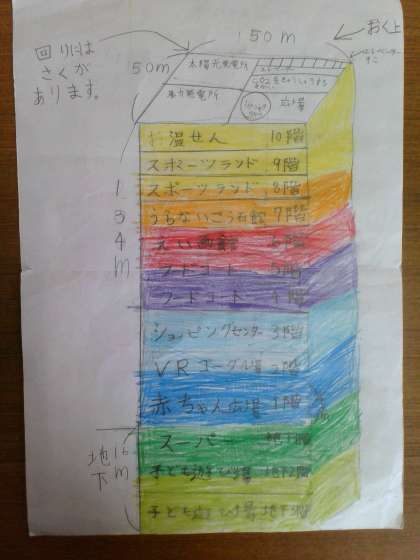 150m
おく上
回りには
さくが
あります。
50m
太陽光発電所
風力発電所
広場
お温せん 10階
スポーツランド 9階
スポーツランド 8階
うらないこう石館 7階
えい画館 6階
フードコート 5階
フードコート 4階
ショッピングセンター 3階
VRゴーグル場 2階
赤ちゃん広場 1階
スーパー 地下1階
子ども遊び場 地下2階
子ども遊び場 地下3階
134m
地下16m